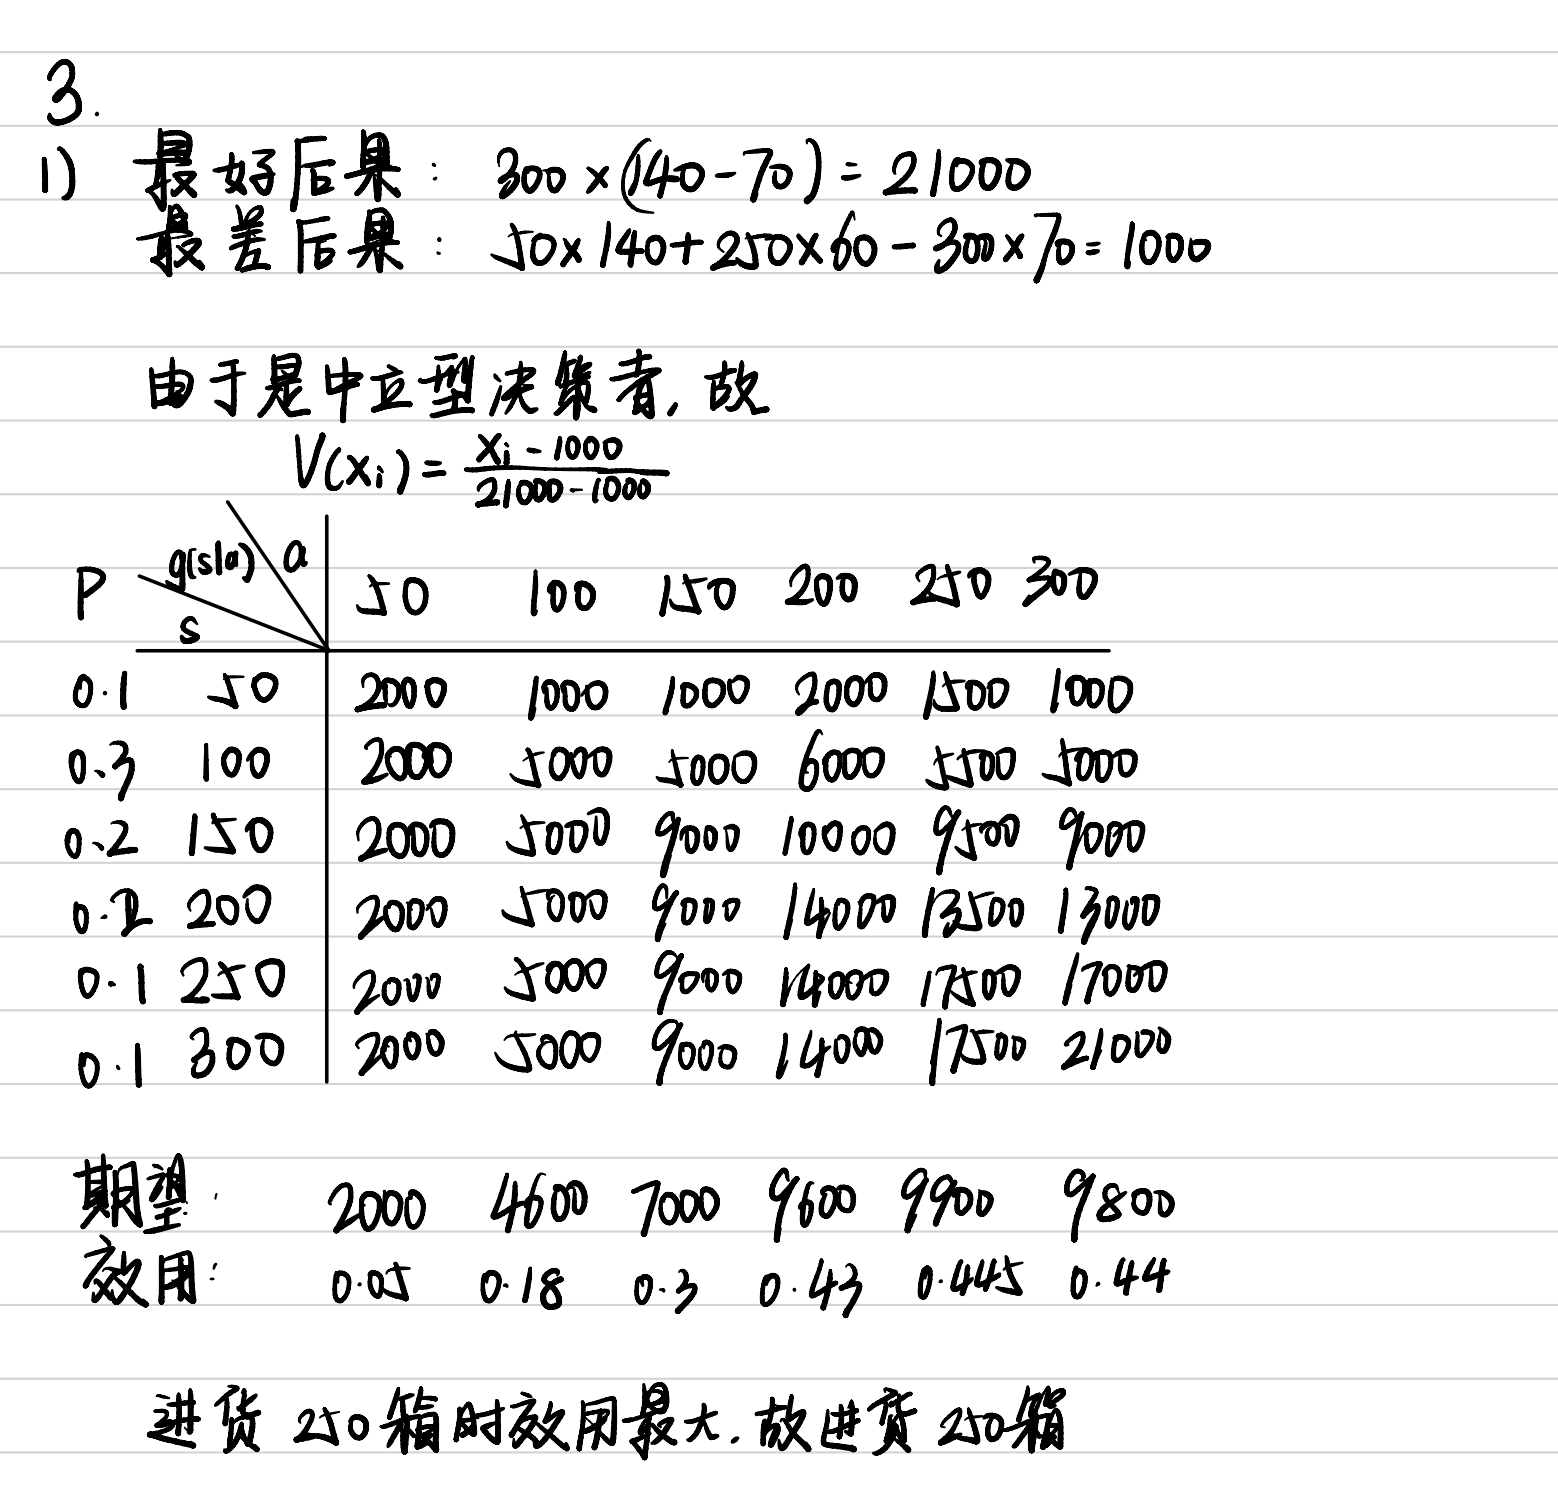 3.
1) 最好后果: 300×(140-70)=21000
最差后果: 50×140+250×60-300×70=1000
由于是中立型决策者,故
V(xi)= xi-1000 / 21000-1000
P g(s|a) a s 50 100 150 200 250 300
0.1 50 2000 1000 1000 2000 1500 1000
0.3 100 2000 5000 5000 6000 5500 5000
0.2 150 2000 5000 9000 10000 9500 9000
0.2 200 2000 5000 9000 14000 13500 13000
0.1 250 2000 5000 9000 14000 17500 17000
0.1 300 2000 5000 9000 14000 17500 21000
期望: 2000 4600 7000 9600 9900 9800
效用: 0.05 0.18 0.3 0.43 0.445 0.44
进货250箱时效用最大.故进货250箱